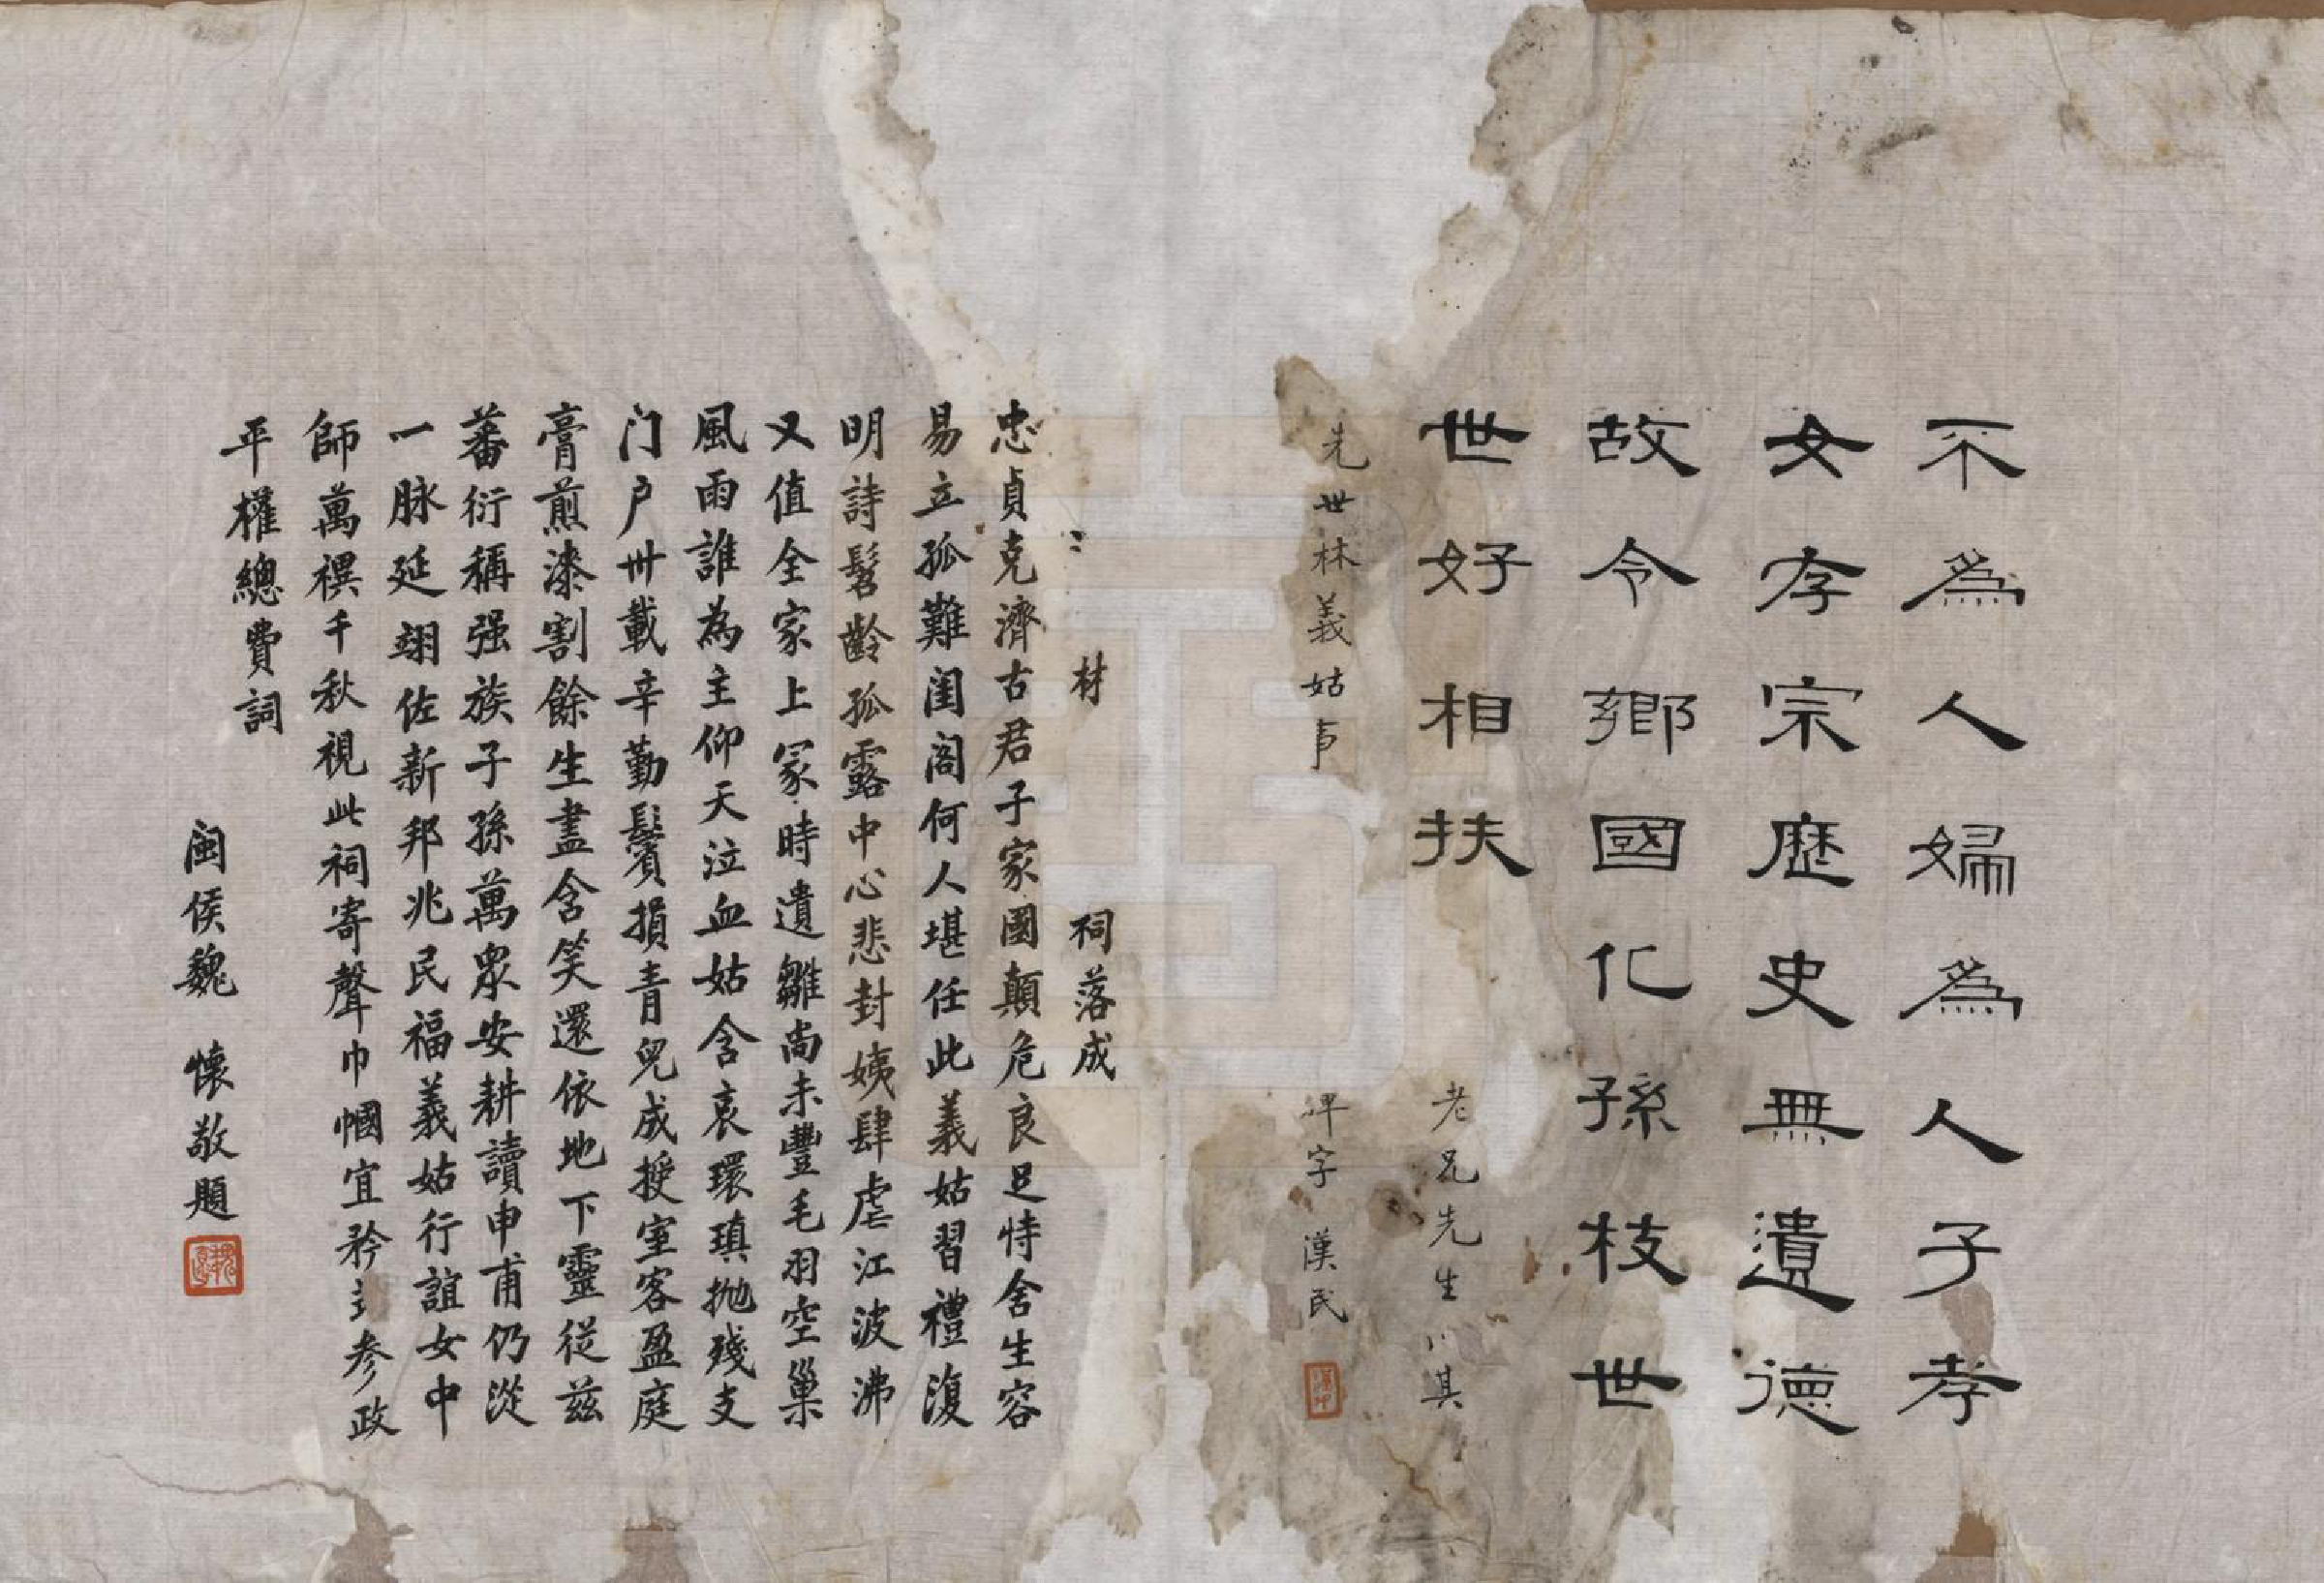 不為人婦為人子孝
女存宗歷史無遺德
故令鄉國化孫枝世
世好相扶
老兄先生 其
先世林義姑事
字漢民
材 祠落成
忠貞克濟古君子家國顛危良足恃舍生容
易立孤難閨閤何人堪任此義姑習禮復
明詩髫齡孤露中心悲封姨肆虐江波沸
又值全家上冢時遺雛尚未豐毛羽空巢
風雨誰為主仰天泣血姑含哀環瑱拋殘支
门户卅載辛勤鬢損青兒成授室客盈庭
膏煎漆割餘生盡含笑還依地下靈從兹
蕃衍稱强族子孫萬眾安耕讀申甫仍從
一脉延翊佐新邦兆民福義姑行誼女中
師萬禩千秋視此祠寄聲巾幗宜矜 参政
平權總費詞
闽侯魏懷敬題